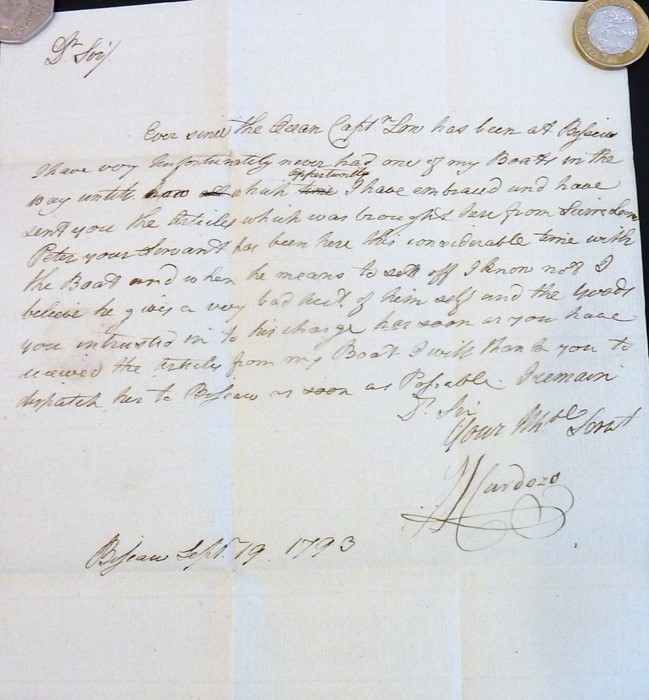 Dr. Sir/.
Ever since the Ocean Captn. Low has been at Bissau
I have very Unfortunately never had one of my Boats in the
way untill now which opportunity I have embraced and have
sent you the Articles which was brought here from Sierra Leone
Peter your Servant has been here this considerable time with
the Boat and when he means to sett off I know not I
believe he gives a very bad acct. of him self and the Goods
you intrusted in to his charge has soon as you have
received the Articles from my Boat I will thank you to
dispatch her to Bissau as soon as Possable. I remain
Dr. Sir
Your Hble Servt
Cardozo
Bissau Sept. 19 1793